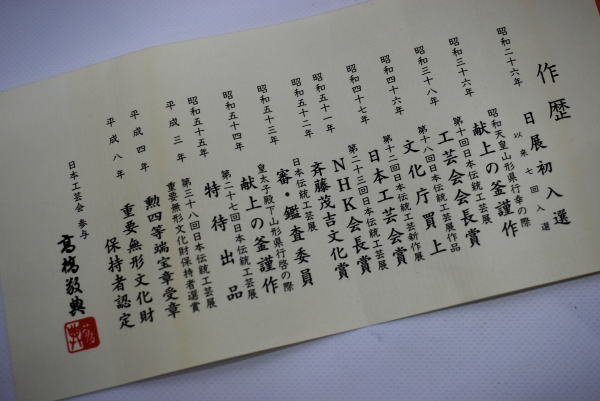 作歴
昭和二十六年
日展初入選
以来七回入選
昭和三十六年
昭和天皇山形県行幸の際
献上の釜謹作
昭和三十八年
第十回日本伝統工芸展
工芸会会長賞
昭和四十六年
第十八回日本伝統工芸展作品
文化庁買上
昭和四十七年
第十二回日本伝統工芸新作展
日本工芸会賞
昭和五十一年
第二十三回日本伝統工芸展
NHK会長賞
昭和五十二年
斉藤茂吉文化賞
昭和五十三年
日本伝統工芸展
審・鑑査委員
昭和五十四年
皇太子殿下山形県行啓の際
献上の釜謹作
昭和五十五年
第二十七回日本伝統工芸展
特待出品
平成三年
第三十八回日本伝統工芸展
重要無形文化財保持者選賞
平成四年
勲四等瑞宝章受章
平成八年
重要無形文化財
保持者認定
日本工芸会 参与
高橋敬典